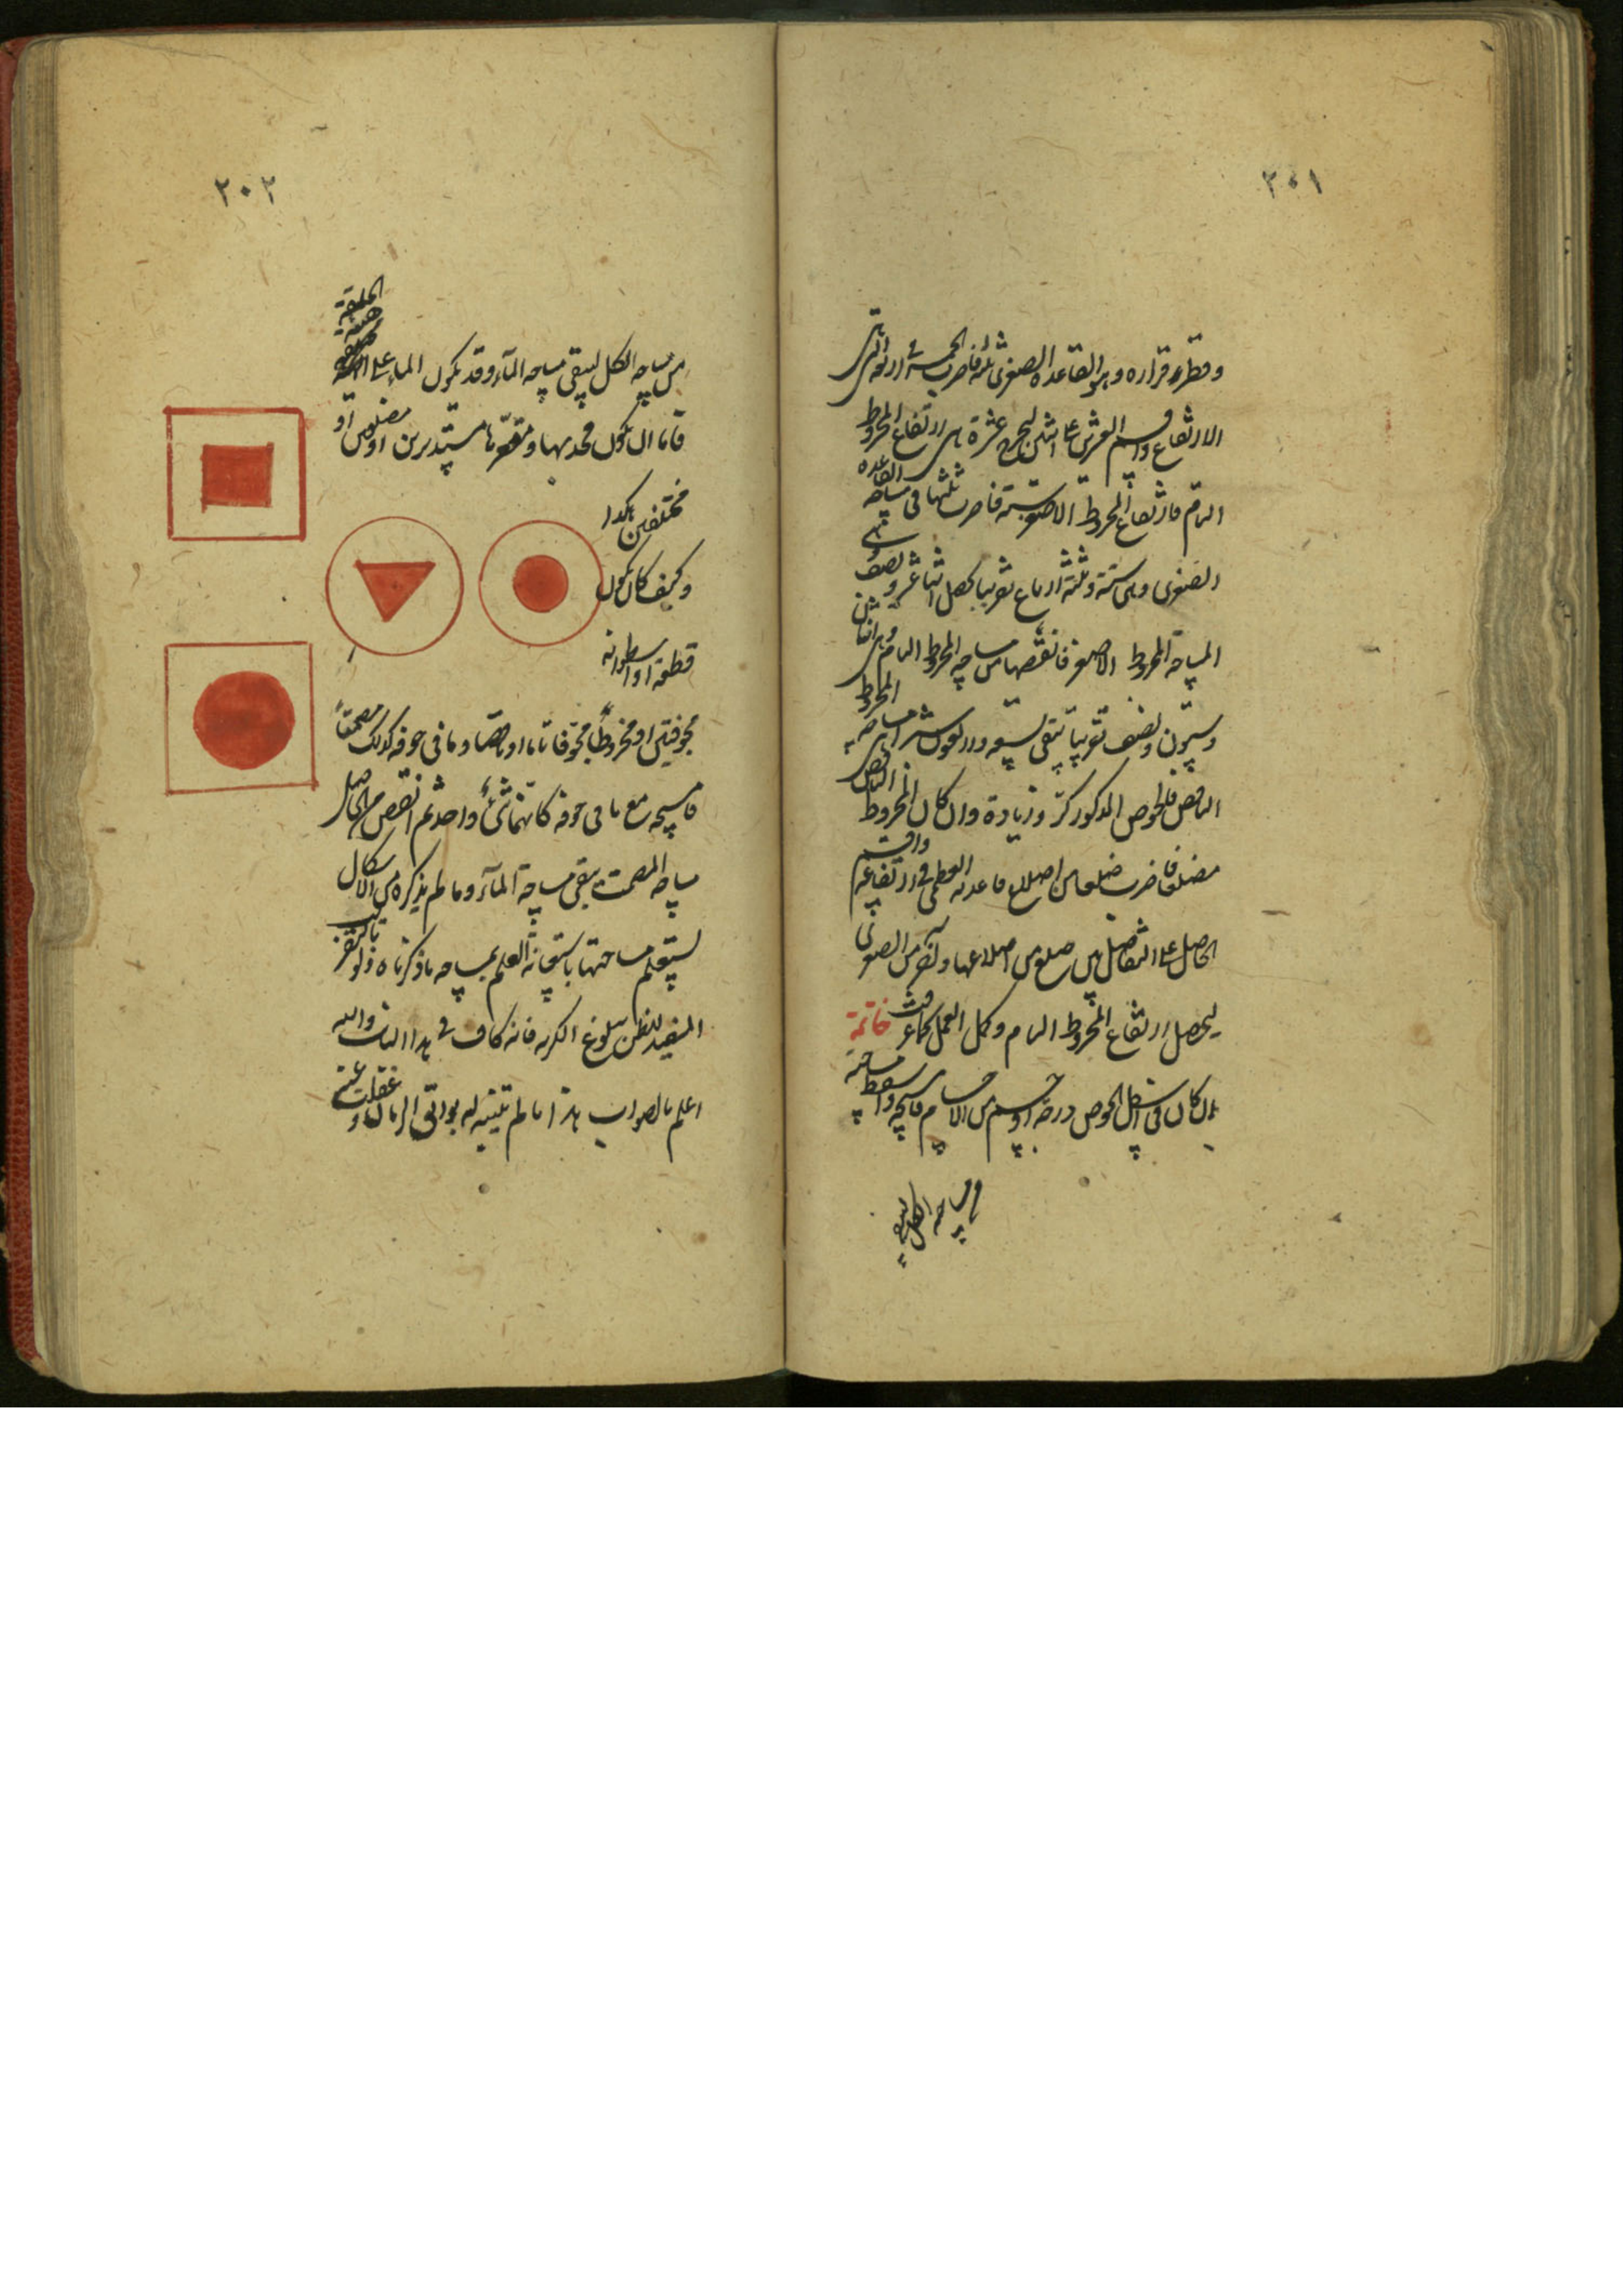 ٢٠١
وقطر قراره وهو القاعدة الصغرى ثلثة فاضرب الخمسة في اربعة التي هي
الارتفاع واقسم العشرين على اثنين ليخرج عشرة هي ارتفاع المخروط
التام فارتفاع المخروط الاصغر ستة فاضرب ثلثها في مساحة القاعدة
الصغرى وهي ستة وثلثة ارباع تقريبا يحصل اثنا عشر ونصف هي
المساحة المخروط الاصغر فانقصها من مساحة المخروط التام وهي اثنان
وستون ونصف تقريبا تبقى تسعة واربعون شبرا هي مساحة المخروط
الناقص فالحوض المذكور كر وزيادة وان كان المخروط الناقص
مضلعا فاضرب ضلعا من اضلاع قاعدته العظمى في ارتفاعه واقسم
الحاصل على التفاضل بين ضلع من اضلاعها وآخر من الصغرى
ليحصل ارتفاع المخروط التام وكمل العمل كما عرفت خاتمة
ان كان في داخل الحوض درجة او جسم من الاجسام فامسحه واسقط مساحته
من مساحة الكل ليبقى
٢٠٢
من مساحة الكل ليبقى مساحة الماء وقد يكون الماء على هيئة الحلقة
فاما ان يكون محدبها ومقعرها مستديرين او مضلعين او
مختلفين هكذا
وكيف كان يكون
قطعة او اسطوانة
مجوفتين او مخروطا مجوفا تاما او ناقصا وما في جوفه كذلك مصمتا
فامسحه مع ما في جوفه كانهما شئ واحد ثم انقص من الحاصل
مساحة المصمت يبقى مساحة الماء وما لم يذكره من الاشكال
يستعلم مساحتها باستعانة العلم بمساحة ما ذكرناه ولو بالتقريب
المفيد للظن ببلوغ الكرية فانه كاف في هذا الباب والله
اعلم بالصواب هذا ما لم تتنبه له بواقي الزمان وغفلت عنه